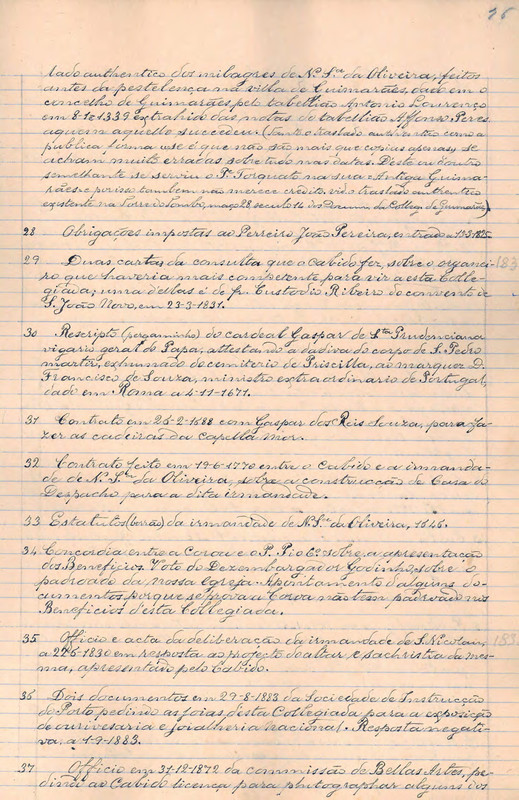 16
lado authentico dos milagres de N. Sra da Oliveira, feitos
antes da pestelença na villa de Guimarães, dado em o
concelho de Guimarães pelo tabellião Antonio Lourenço
em 8-1º-1339 extrahido das notas do tabellião Affonso Peres
a quem aquelle succedeu. (Tanto o traslado authentico como a
publica fórma
que não são mais que copias apenas, se
acham muito erradas sobretudo nas datas. Deste ou doutro
semelhante se serviu o Pe Torquato na sua Antiga Guima-
rães e por isso tambem não merece credito, vid. o traslado authentico
existente na Torre do Tombo, maço 28, seculo 14 dos Docum. da Colleg. de Guimarães).
28 Obrigações impostas ao Porteiro João Pereira, entrado a 1825.
29 Duas cartas da consulta que o Cabido fez, sobre o organei-
ro que haveria mais competente para vir a esta Colle- 183
giada; uma dellas é de fr. Custodio Ribeiro do convento de
S. João Novo, em 23-3-1831.
30 Rescripto (pergaminho) do cardeal Gaspar de Sta Prudenciana
vigario geral do Papa, attestando a dadiva do corpo de S. Pedro
martir, exhumado do cemiterio de Priscilla, ao marquez D.
Francisco de Souza, ministro extraordinario de Portugal,
dado em Roma a 4-11-1671.
31 Contrato em 26-2-1688 com Gaspar dos Reis Souza, para fa-
zer as cadeiras da capella Mór.
32 Contrato feito em 1770 entre o Cabido e a irmanda-
de de N. Sra da Oliveira, sobre a construcção de Casa do
Despacho para a dita irmandade.
33 Estatutos (borrão) da irmandade de N. Sra da Oliveira, 1646.
34 Concordia entre a Coroa e o P. Pio 6º sobre a apresentação
dos Beneficios. Voto do Dezembargador Godinho, sobre o
padroado da nossa egreja. Apontamento d'alguns do-
cumentos porque se prova a Coroa não tem padroado nos
Beneficios d'esta Collegiada.
35 Officio e acta da deliberação da irmandade de S. Nicolau,
a 2-6-1830 em resposta ao projecto do altar e sachristia da mes- 183
ma, apresentado pelo Cabido.
36 Dois documentos em 29-8-1883 da Sociedade de Instrucção
do Porto, pedindo as joias d'esta Collegiada para a exposição
de ourivesaria e joialheria nacional. Resposta negati-
va, a 1-9-1883.
37 Officio em 31-12-1872 da commissão de Bellas Artes, pe-
dindo ao Cabido licença para photographar alguns dos